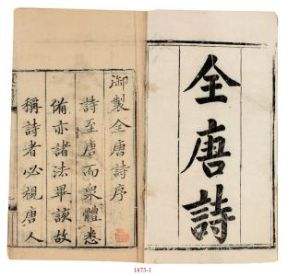 全唐詩
御製全唐詩序
詩至唐而衆體悉
備亦諸法畢該故
稱詩者必視唐人
1473-1